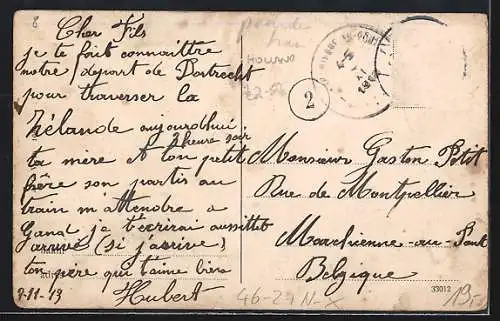 8
Cher Fils
je te fait connaittre
notre depart de Dortrecht
pour traverser la
Zélande aujourdhui
2 heure soir
ta mère et ton petit
frère son partis au
train m'attendre a
Gand je t'ecrirai aussitot
arrivé (si j'arrive)
ton père qui t'aime bien
9-11-13 Hubert
HOLLAND
2
Monsieur Gaston Petit
Rue de Montpellier
Marchienne-au-Pont
Belgique
33012
46-27 N-X